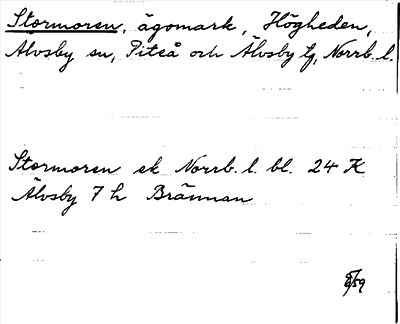 Stormoren, ägomark, Högheden,
Älvsby sn, Piteå och Älvsby tg, Norrb. l.
Stormoren ek Norrb. l. bl. 24 K
Älvsby 7 h Brännan